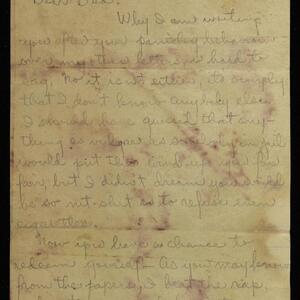 Dear Dea:
Why I am writing
you after your behavior
over my other letters is hard to
say. No it isn't either, its simply
that I don't know anybody else.
I should have guessed that any-
thing as vulgar as
would put the wind up you for
fair, but I didn't dream you would
be so as to refuse even
cigarettes.
Now you have a chance to
redeem yourself. As you may know
from the papers, I beat the rap,